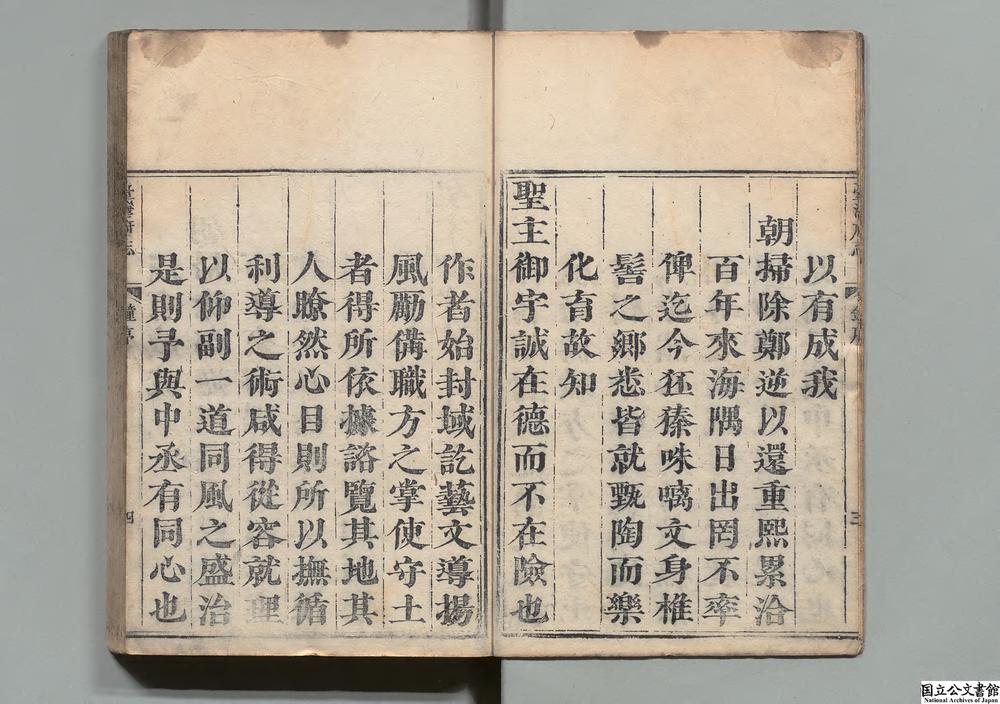 以有成我
朝掃除鄭逆以還重熙累洽
百年來海隅日出罔不率
俾迄今狉獉咮㗅文身椎
髻之鄉悉皆就甄陶而樂
化育故知
聖主御宇誠在德而不在險也
作者始封域訖藝文導揚
風勵備職方之掌使守土
者得所依據諮覽其地其
人瞭然心目則所以撫循
利導之術咸得從容就理
以仰副一道同風之盛治
是則予與中丞有同心也
臺灣府志
鐘序
四
三
国立公文書館
National Archives of Japan